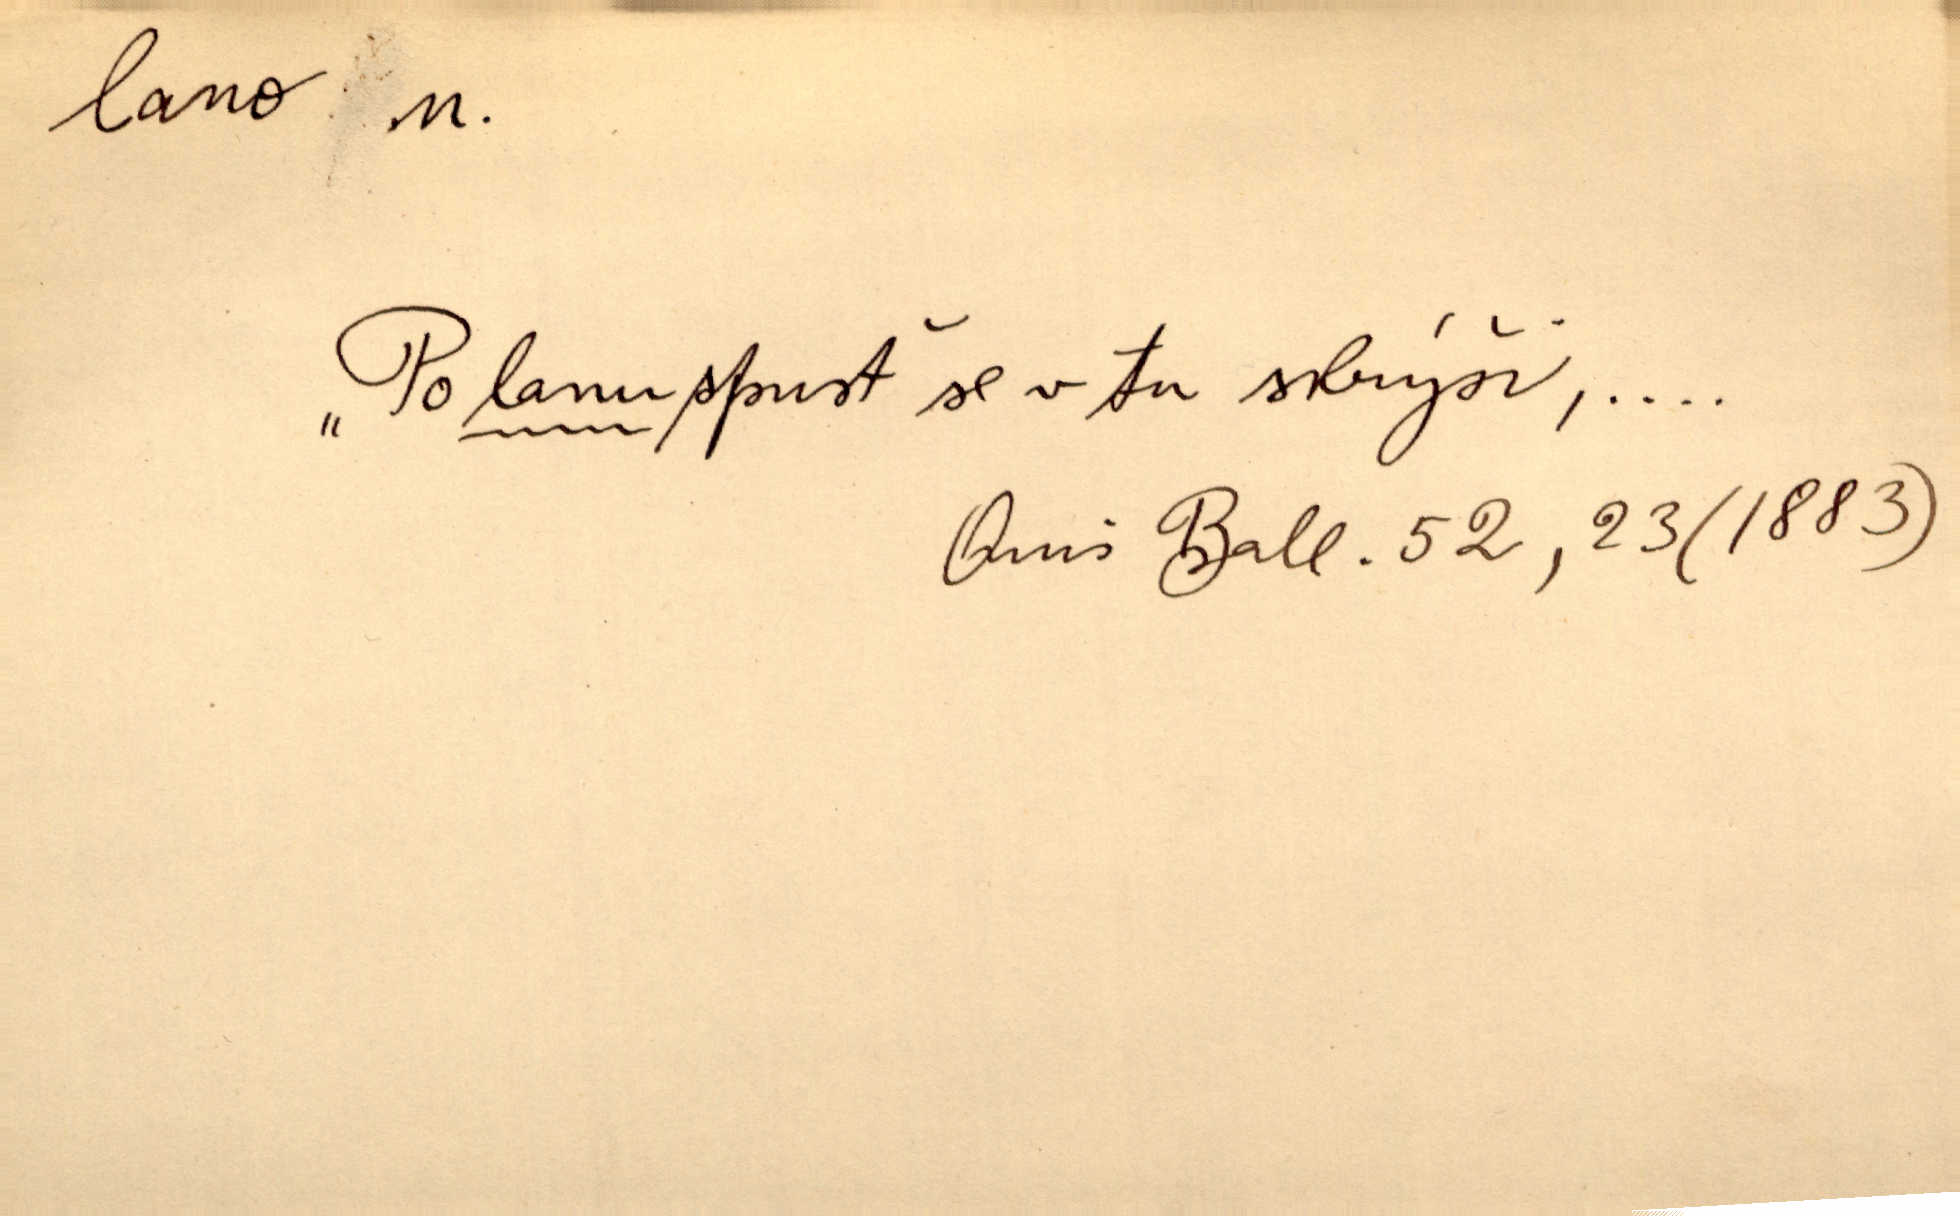 lano n.
„Po lanu spusť se v tu skrýši, ....
Quis Ball. 52, 23 (1883)